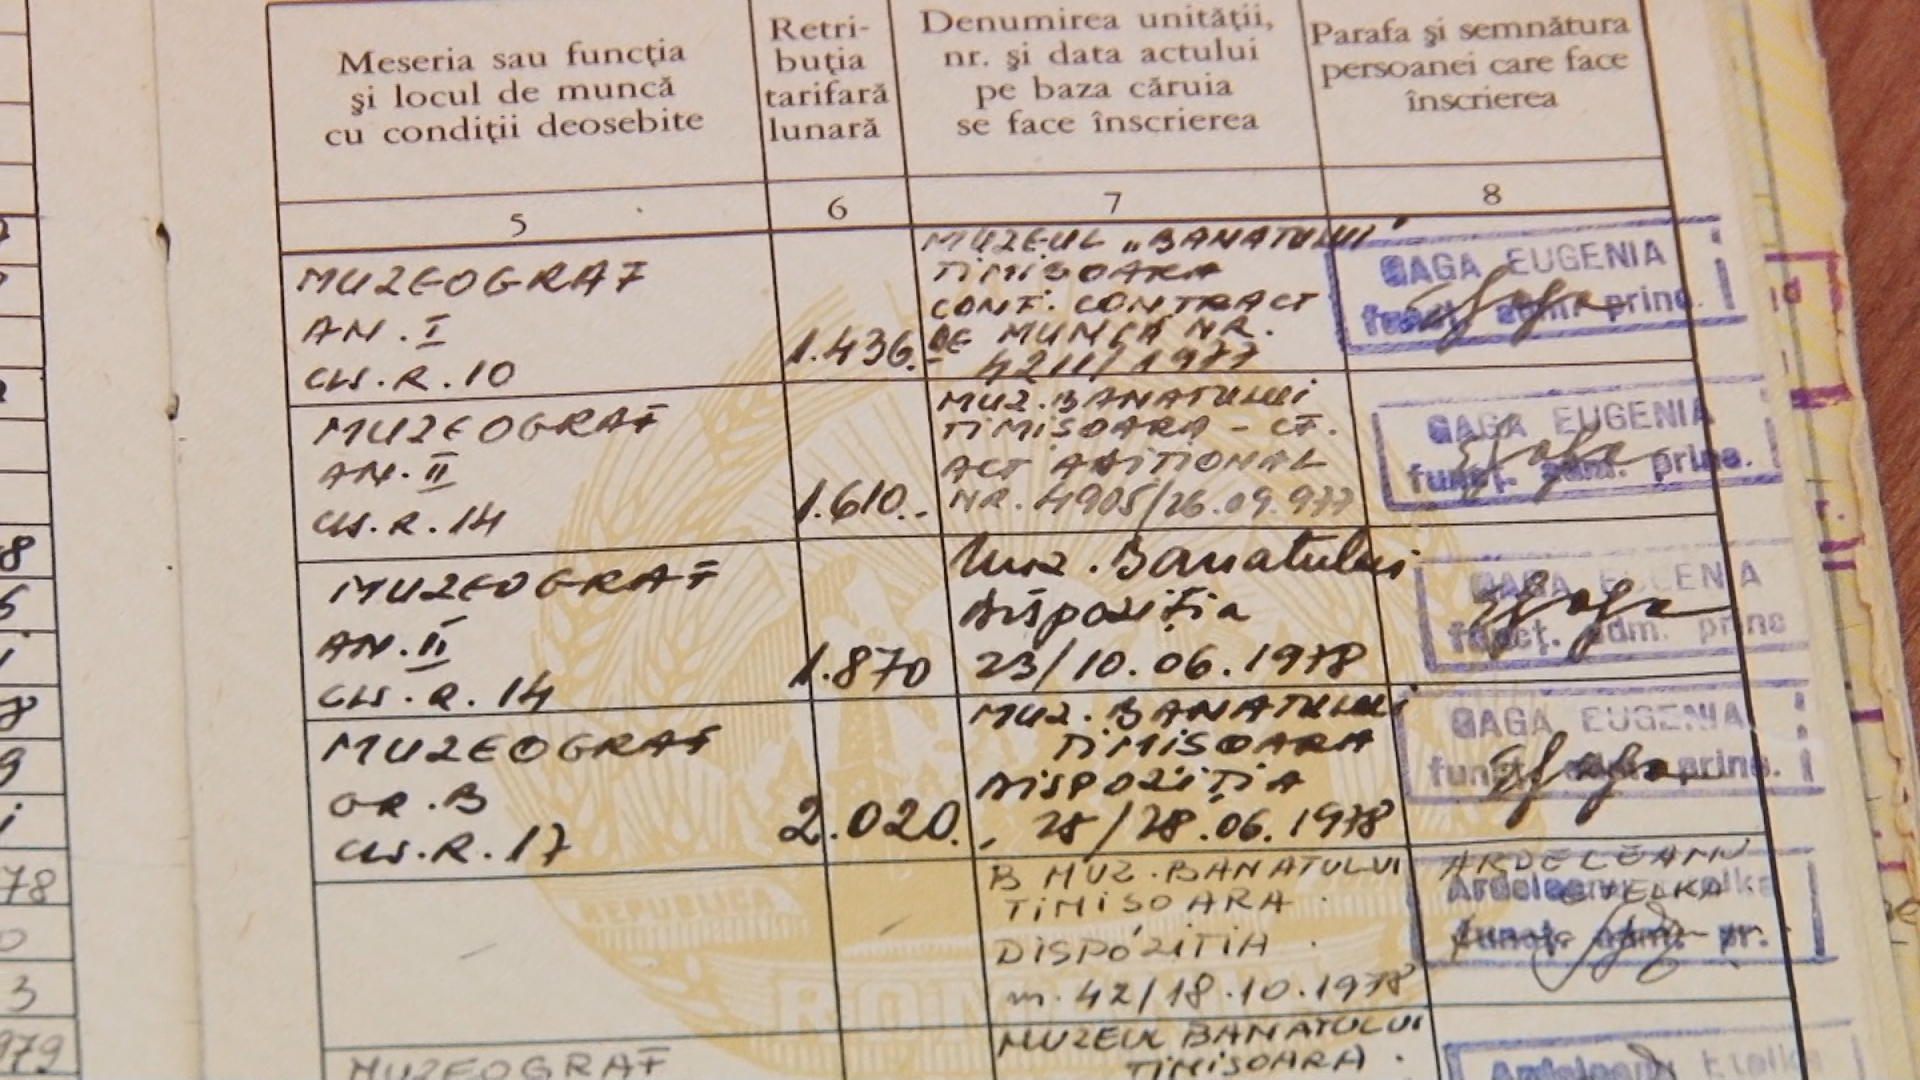 Meseria sau funcţia
şi locul de muncă
cu condiţii deosebite
Retri-
buţia
tarifară
lunară
Denumirea unităţii,
nr. şi data actului
pe baza căruia
se face înscrierea
Parafa şi semnătura
persoanei care face
înscrierea
5
6
7
8
MUZEOGRAF
AN. I
CLS. R. 10
1.436.-
MUZEUL „BANATULUI"
TIMISOARA
CONF. CONTRACT
DE MUNCĂ NR.
4211/1977
GAGA EUGENIA
funcţ. adm. princ.
MUZEOGRAF
AN. II
CLS. R. 14
1.610.-
MUZ. BANATULUI
TIMISOARA - CF.
ACT ADITIONAL
NR. 4905/26.09.977
GAGA EUGENIA
funcţ. adm. princ.
MUZEOGRAF
AN. II
CLS. R. 14
1.870
Muz. Banatului
Dispoziţia
23/10.06.1978
GAGA EUGENIA
funcţ. adm. princ
MUZEOGRAF
GR. B
CLS. R. 17
2.020.
MUZ. BANATULUI
TIMISOARA
DISPOZIŢIA
28/28.06.1978
GAGA EUGENIA
funcţ. adm. princ.
MUZ. BANATULUI
TIMISOARA
DISPOZITIA
nr. 42/18.10.1978
ARDELEANU
ETELKA
Ardeleanu Etelka
funcţ. adm. pr.
MUZEOGRAF
MUZEUL BANATULUI
TIMISOARA
Ardeleanu Etelka
REPUBLICA
ROMÂNIA
78
3
979